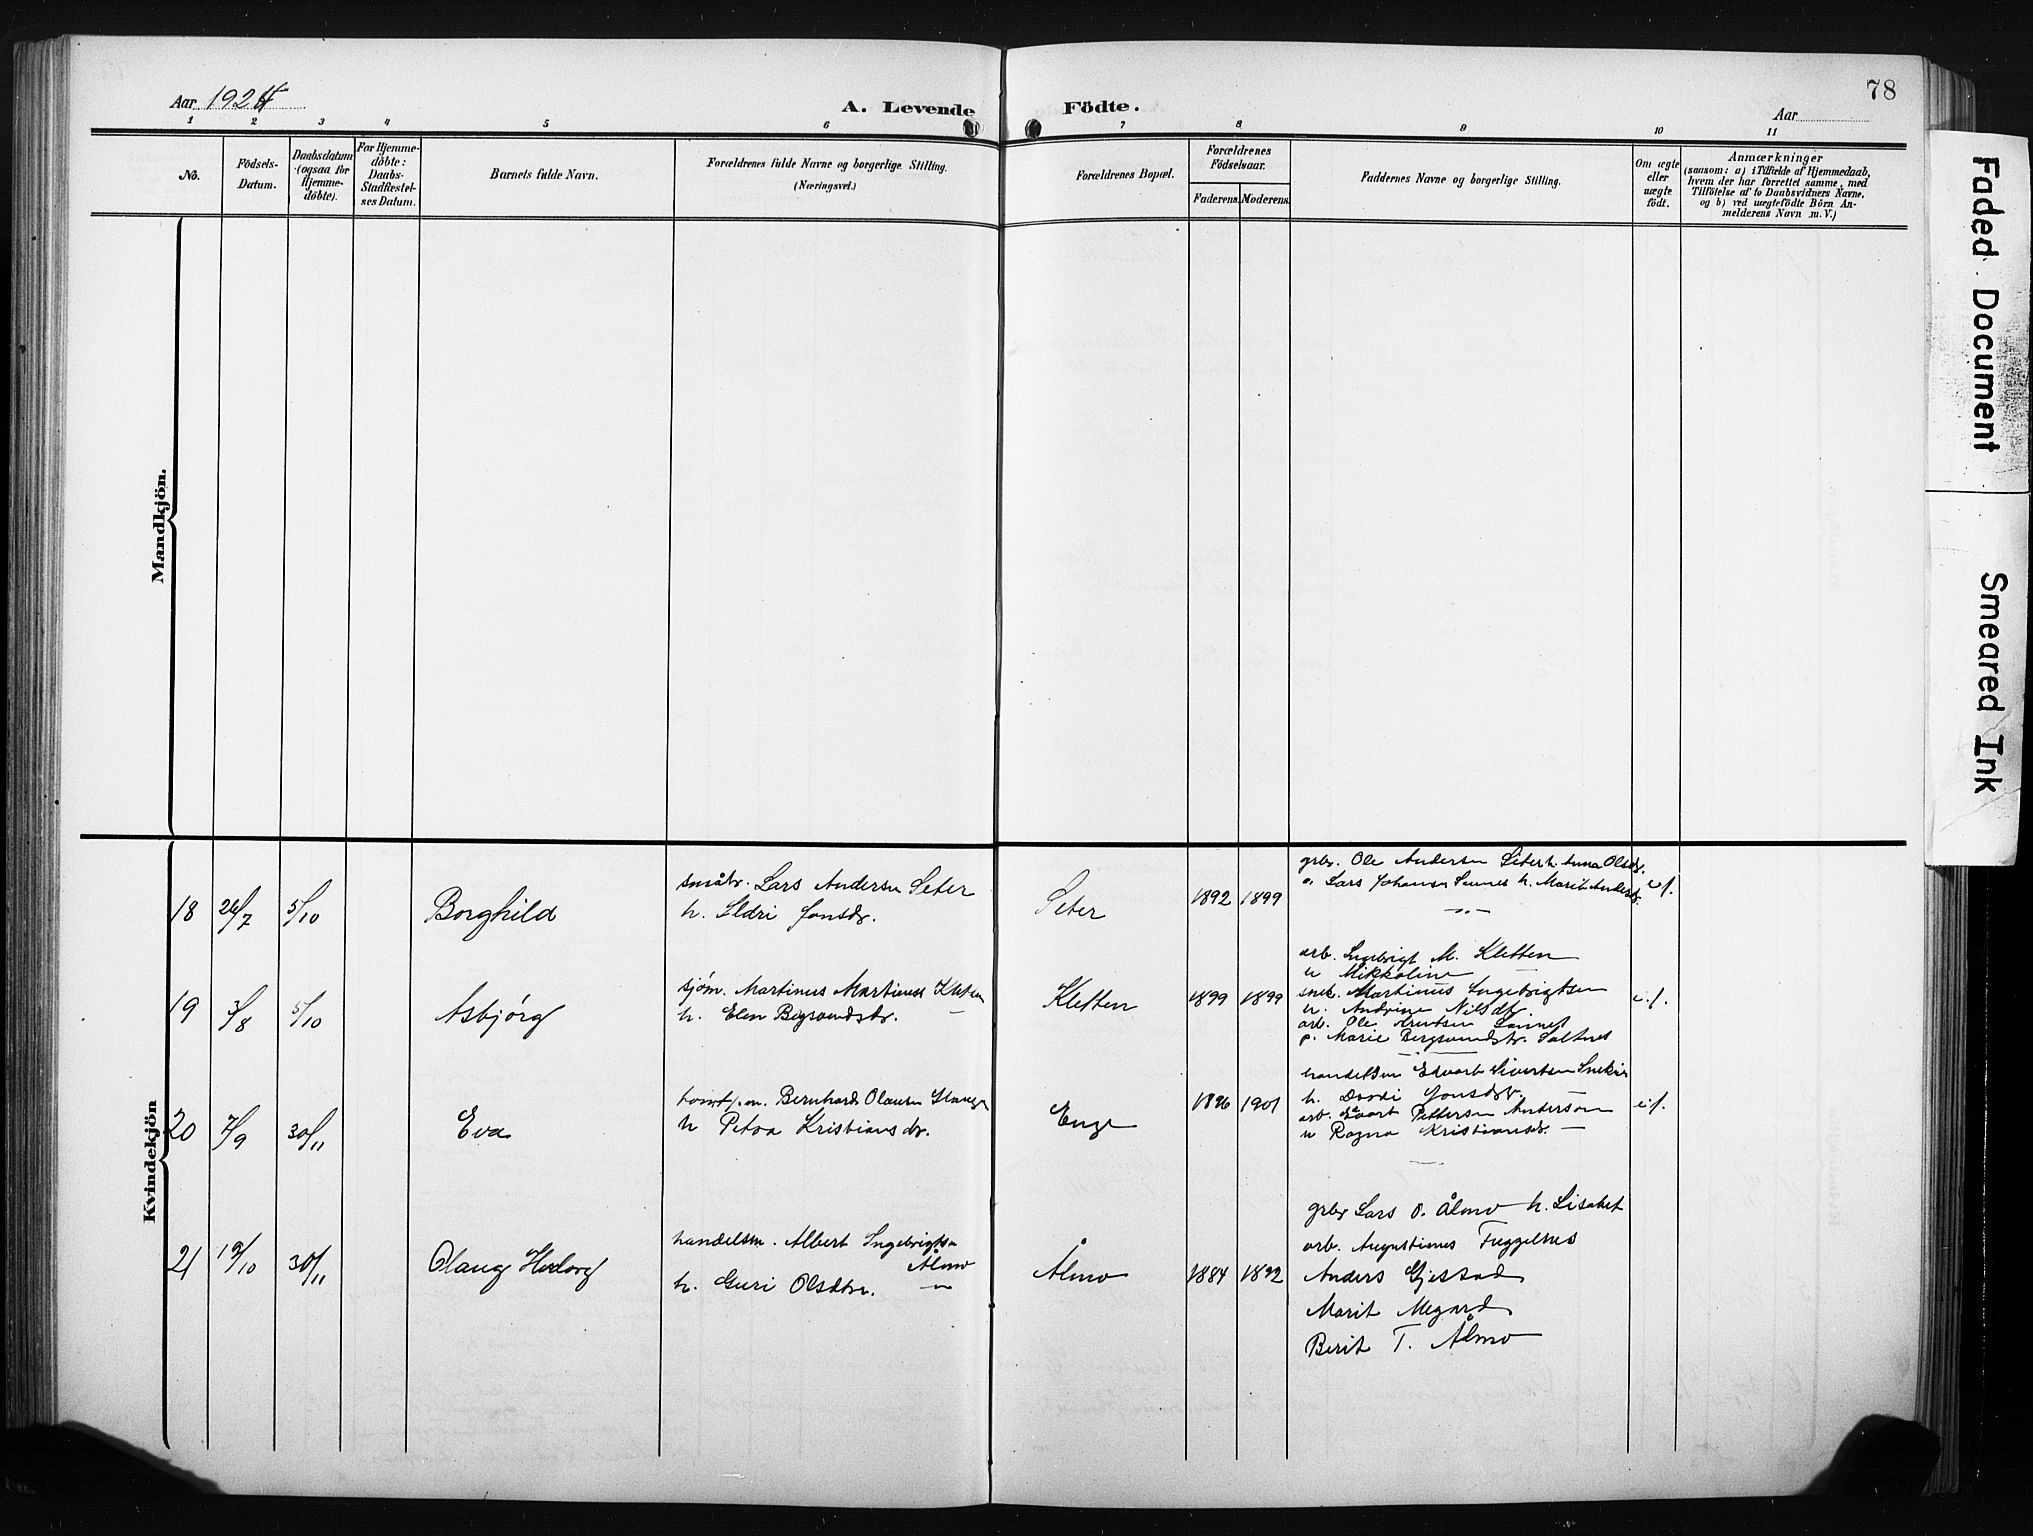 78
Aar 1924
A. Levende Födte.
Aar
1 2 3 4 5 6 7 8 9 10 11
No.
Födsels-Datum.
Daabsdatum (ogsaa for Hjemme-döbte).
For Hjemme-döbte: Daabs-Stadfæstel-ses Datum.
Barnets fulde Navn.
Forældrenes fulde Navne og borgerlige Stilling. (Næringsvei.)
Forældrenes Bopæl.
Forældrenes Födselsaar.
Faderens. Moderens.
Faddernes Navne og borgerlige Stilling.
Om ægte eller uægte födt.
Anmærkninger
(saasom: a) i Tilfælde af Hjemmedaab,
hvem der har forrettet samme, med
Tilföielse af to Daabsvidners Navne,
og b) ved uægtefödte Börn An-
melderens Navn m. V.)
Mandkjön.
Kvindekjön
18 26/7 5/10 Borghild
småbr. Lars Andersen Seter
h. Ildri Jonsdr.
Seter
1892 1899
grbr. Ole Andersen Seter h. Anna Olsdr.
Lars Johansen h. Marit Andersdr.
19 3/8 5/10 Asbjørg
sjøm. Martinus Martinussen Kletten
h. Elen Bergsvendsdr. —
Kletten
1899 1899
arb. Ingebrigt M. Kletten
h. Mikkoline —
snek. Martinus Ingebrigtsen
h. Andrine Nilsdtr.
arb. Ole Knutsen
p. Marie Bergsvendsdtr. Saltnes
e.f.
20 7/9 30/11 Eva
Bernhard Olausen
h. Petra Kristiansdr.
Enge
1896 1901
handelsm Edvart Sivertsen
h. Jonsdtr. —
arb. Edvart Pettersen Anderson
h Ragna Kristiansdr. —
e.f.
21 19/10 30/11 Olaug
handelsm. Albert Ingebrigtsen Ålmo
h. Guri Olsdtr. —
Ålmo
1884 1892
grbr Lars O. Ålmo h. Lisabet
arb. Augustinus Fuggelsnes
Anders Gjestad
Marit Megard
Berit T. Ålmo
Faded Document
Smeared Ink